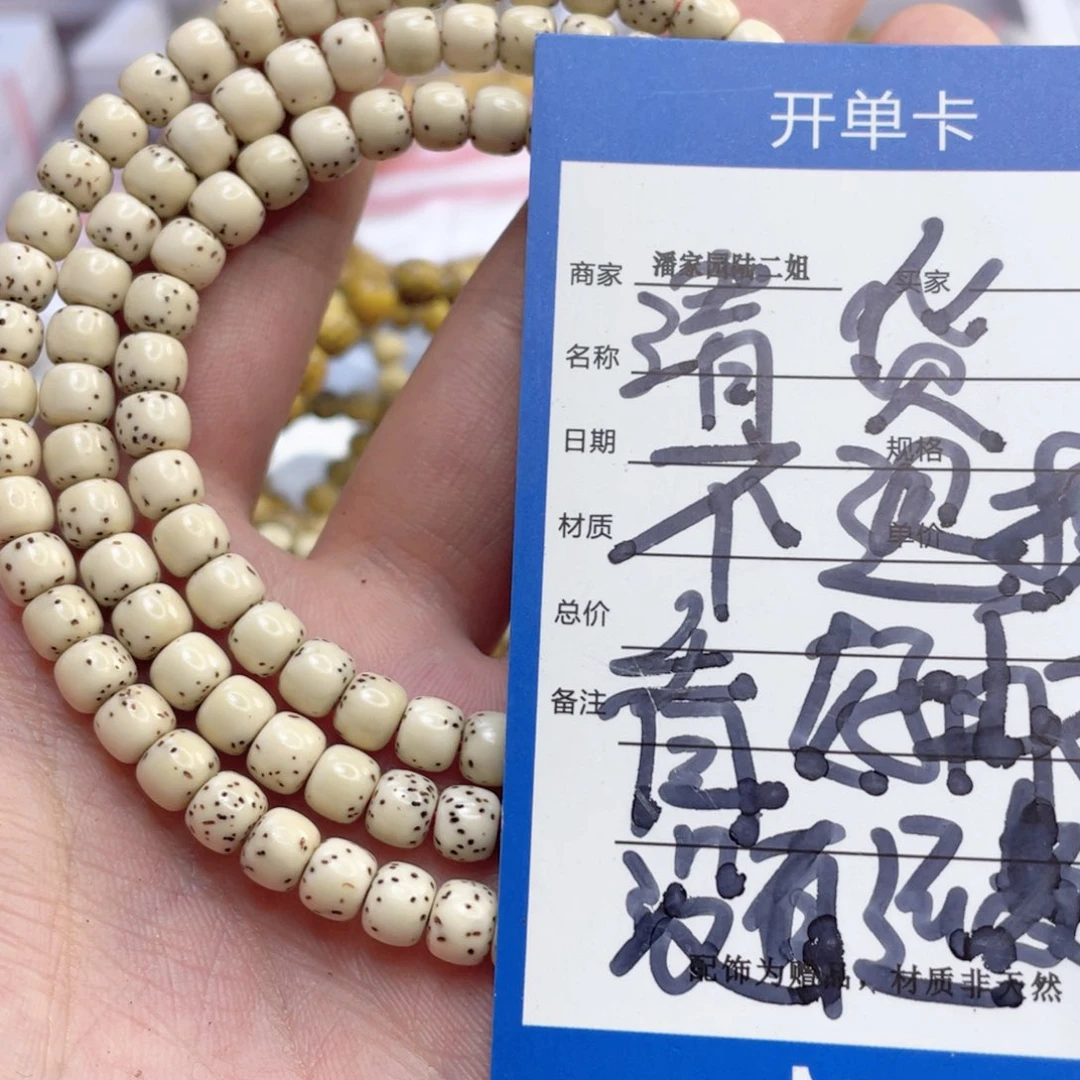 开单卡
商家 潘家园陆二姐 买家
清货
名称
日期 规格
不退
材质 单价
总价
看好
备注
没有
配饰为赠品，材质非天然